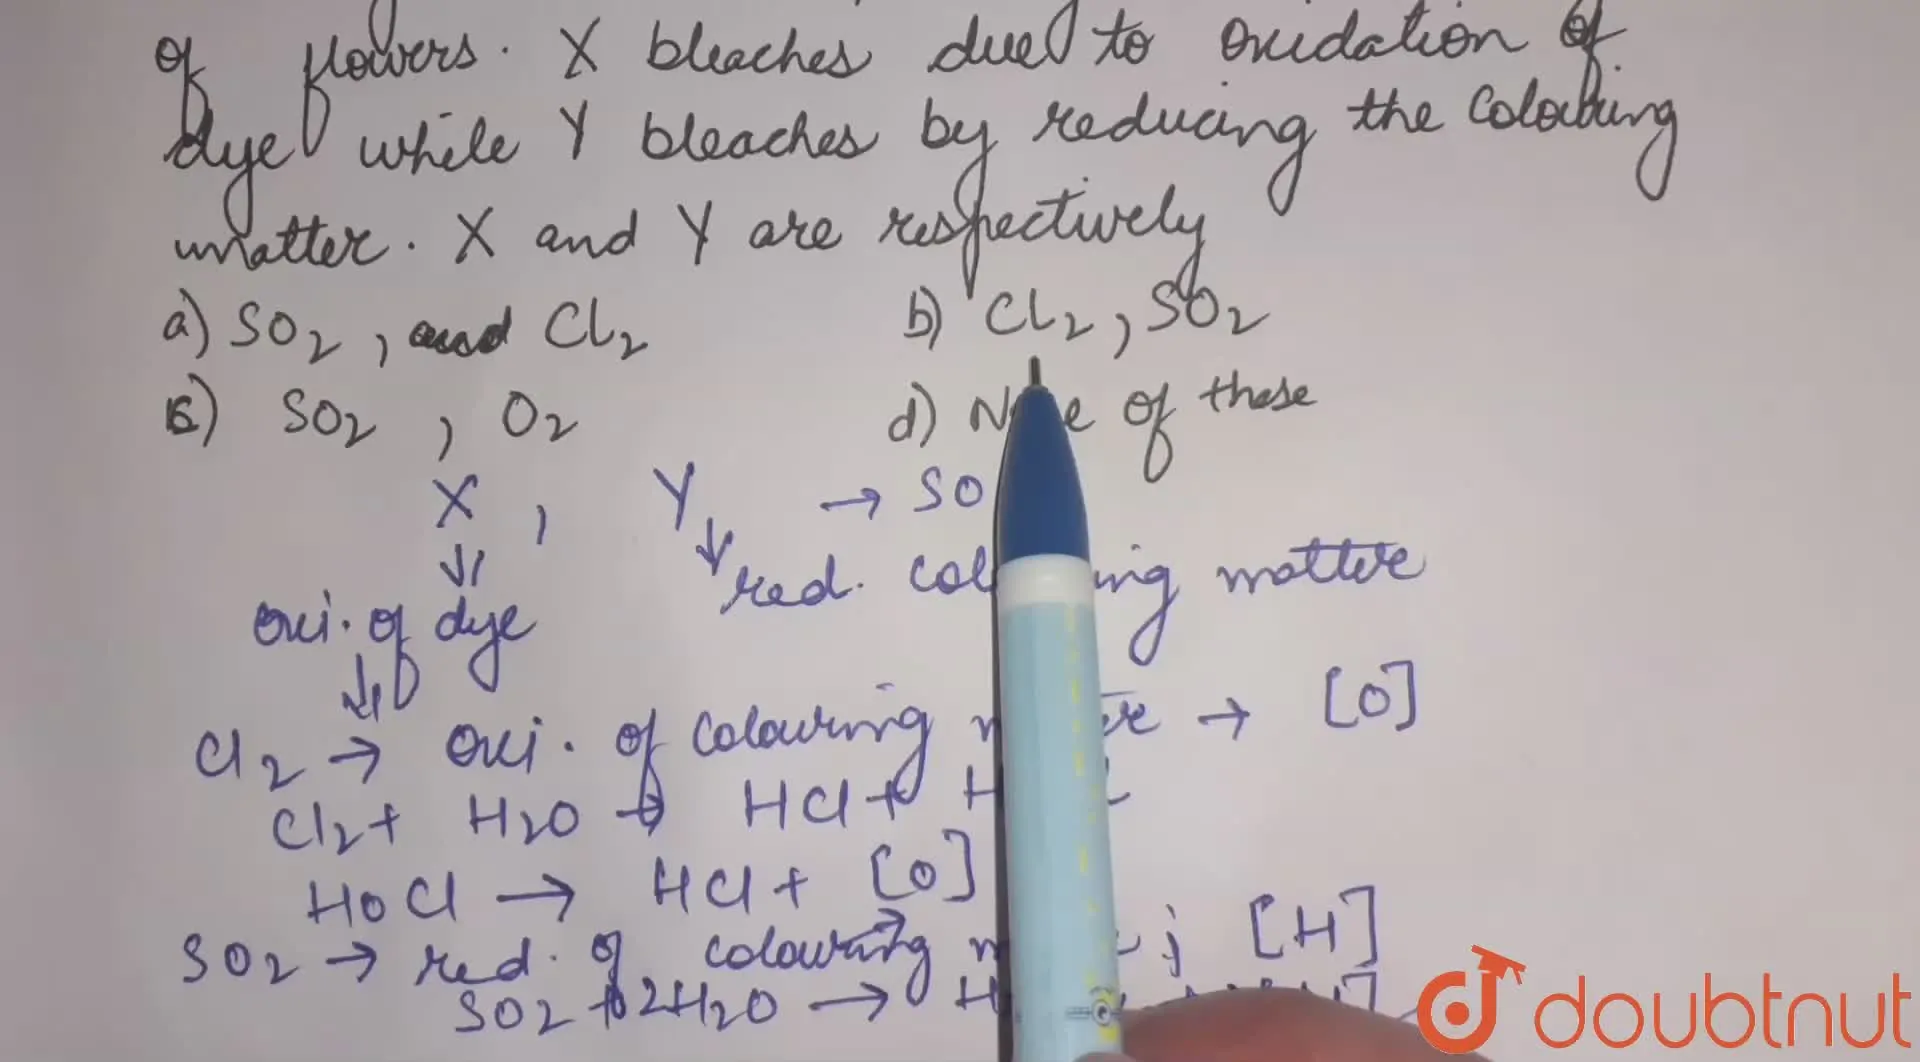 of flowers. X bleaches due to oxidation of
dye while Y bleaches by reducing the colouring
matter. X and Y are respectively
a) SO2, and Cl2 b) Cl2, SO2
c) SO2, O2 d) of these
X, Y → SO
oxi. of dye red. matter
Cl2 → oxi. of colouring → [O]
Cl2 + H2O → HCl +
HOCl → HCl + [O]
SO2 → red. of colouring ; [H]
SO2 + 2H2O →
doubtnut